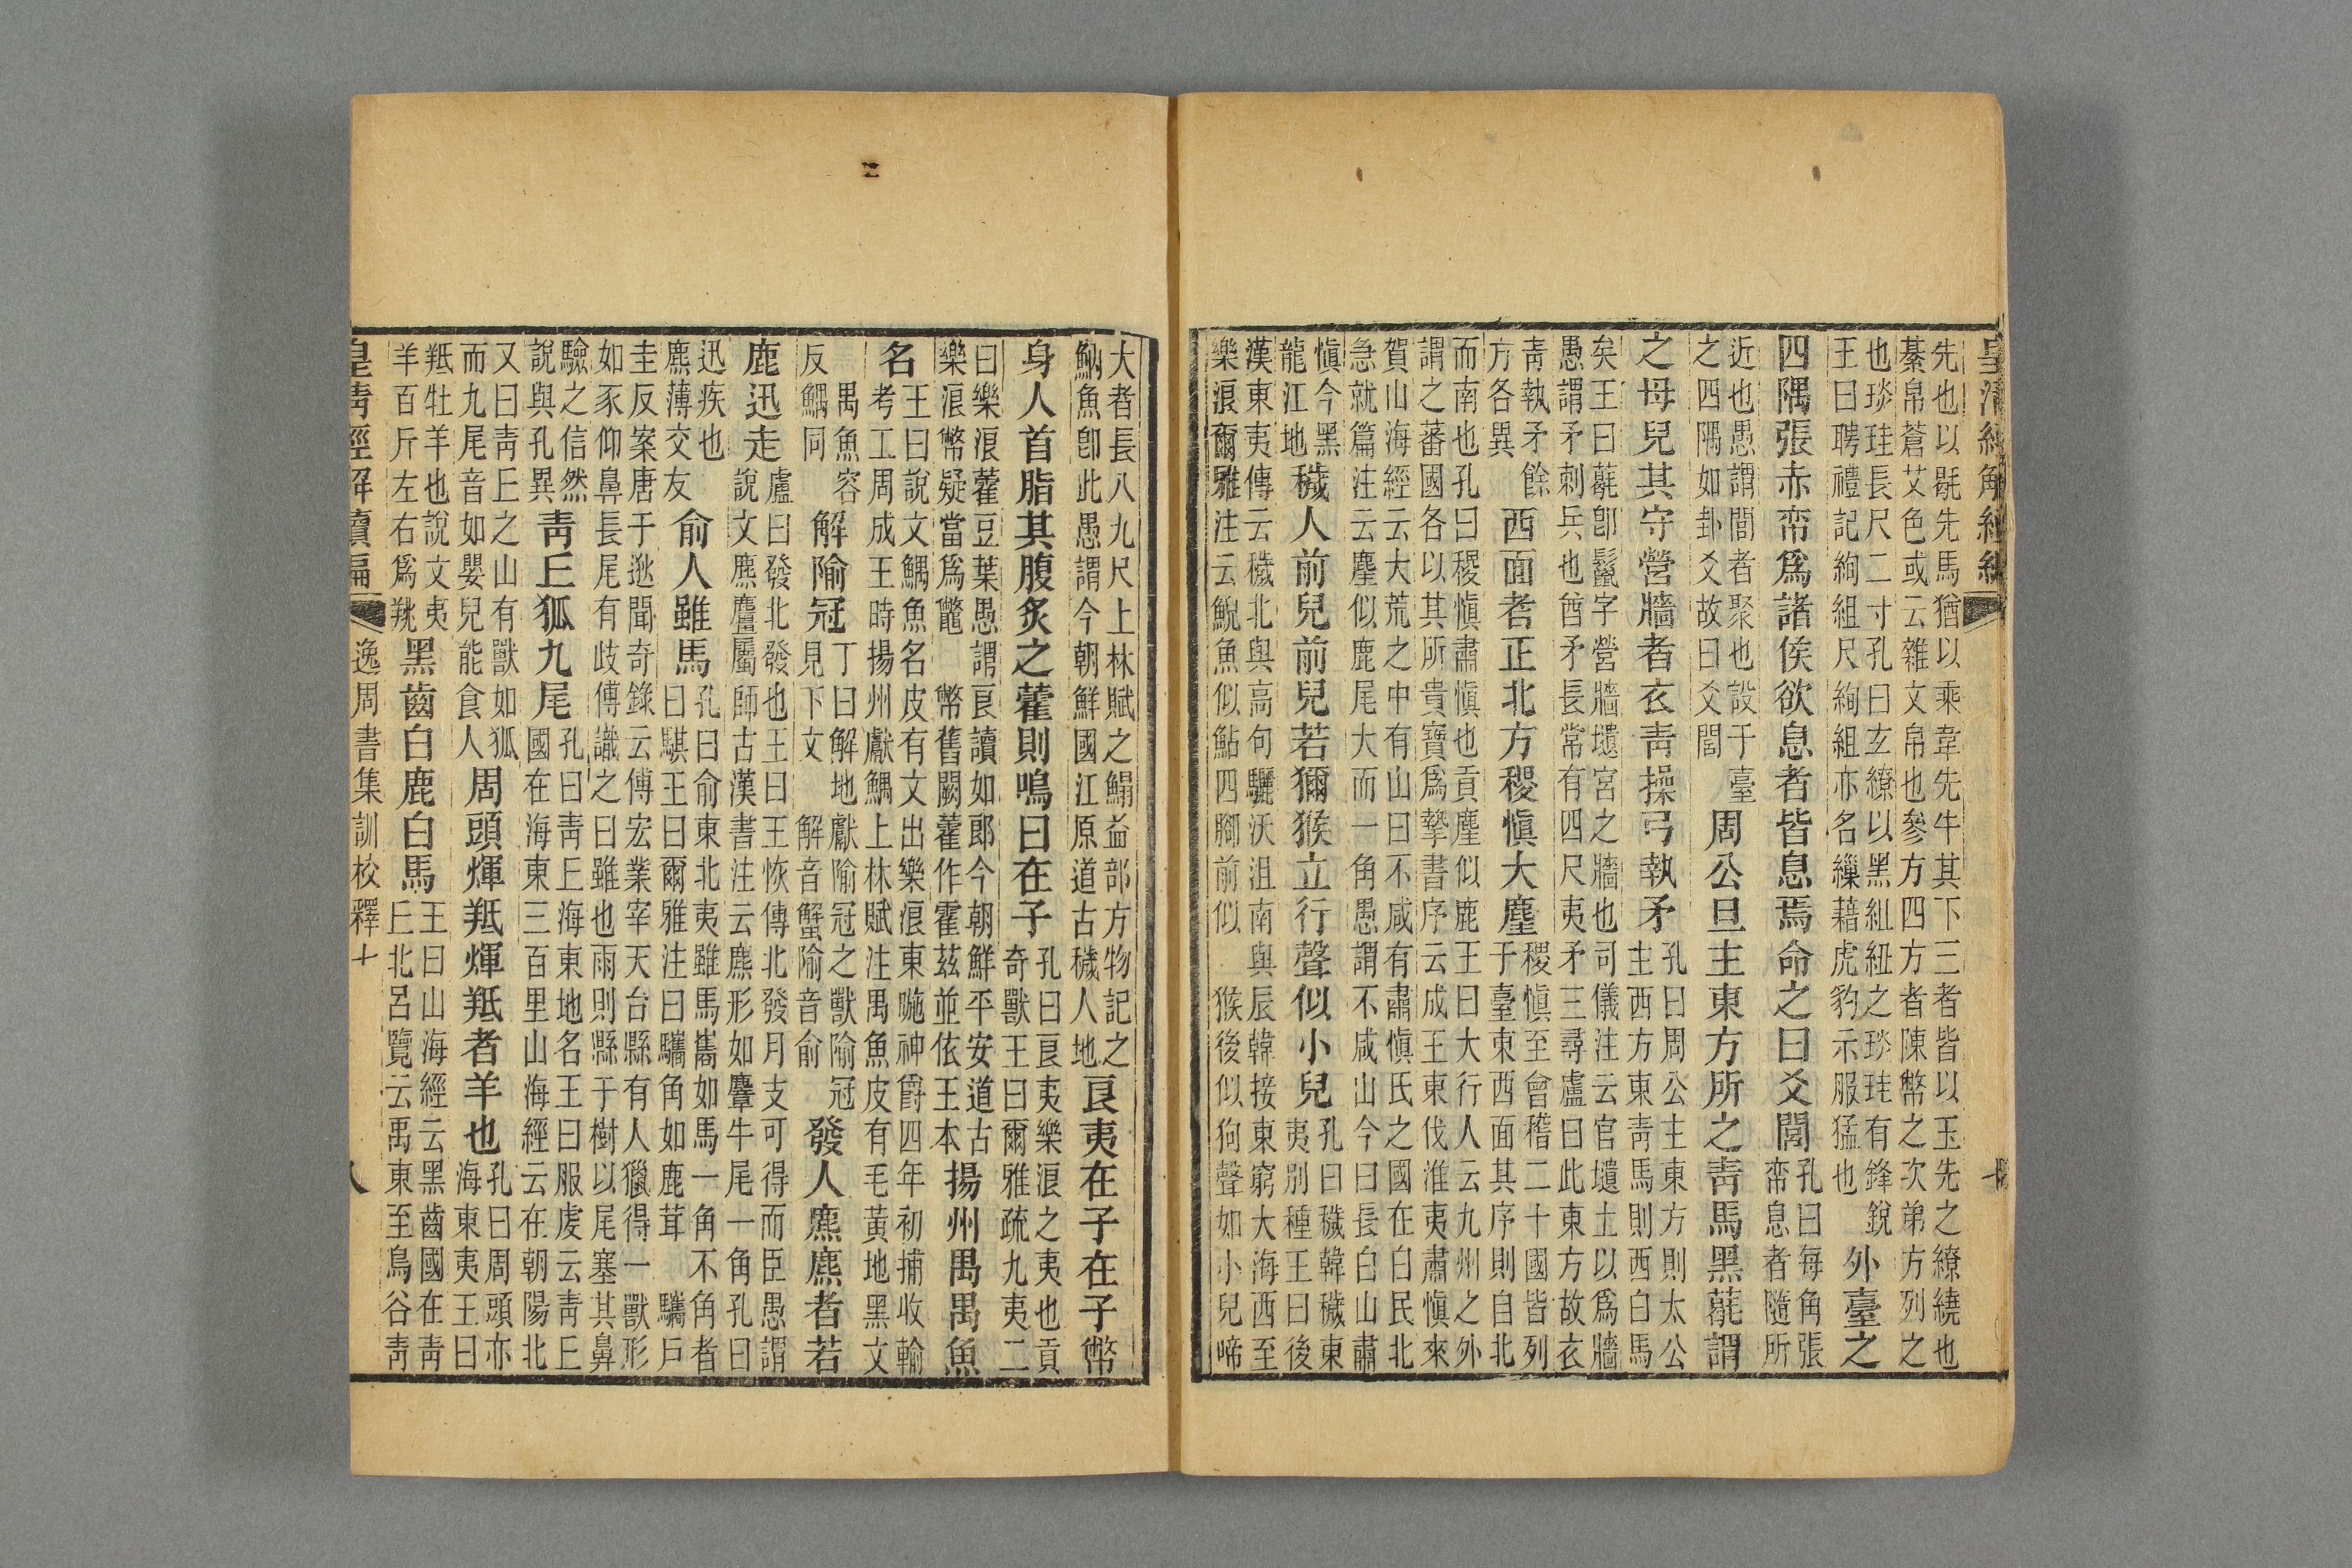 先也以䞣先馬猶以乘韋先牛其下三者皆以玉先之繚繞也
綦帛蒼艾色或云雜文帛也參方四方者陳幣之次弟方列之
也琰珪長尺二寸孔曰玄繚以黑組紐之琰珪有鋒銳
王曰聘禮記絢組尺絢組亦名繅藉虎豹示服猛也
外臺之
四隅張赤帟爲諸侯欲息者皆息焉命之曰爻閭
孔曰每角張
帟息者隨所
近也愚謂閭者聚也設于臺
之四隅如卦爻故曰爻閭
周公旦主東方所之靑馬黑䶫謂
之母兒其守營牆者衣靑操弓執矛
孔曰周公主東方則太公
主西方東靑馬則西白馬
矣王曰䶫卽鬣字營牆壝宮之牆也司儀注云官壝土以爲牆
愚謂矛刺兵也酋矛長常有四尺夷矛三尋盧曰此東方故衣
靑執矛餘
方各異
西面者正北方稷愼大麈
稷愼至會稽二十國皆列
于臺東西面其序則自北
而南也孔曰稷愼肅愼也貢麈似鹿王曰大行人云九州之外
謂之蕃國各以其所貴寶爲摯書序云成王東伐淮夷肅愼來
賀山海經云大荒之中有山曰不咸有肅愼氏之國在白民北
急就篇注云麈似鹿尾大而一角愚謂不咸山今曰長白山肅
愼今黑
龍江地
穢人前兒前兒若獼猴立行聲似小兒
孔曰穢韓穢東
夷別種王曰後
漢東夷傳云穢北與高句驪沃沮南與辰韓接東窮大海西至
樂浪爾雅注云鯢魚似鮎四腳前似猴後似狗聲如小兒啼
大者長八九尺上林賦之鰨益部方物記之
魶魚卽此愚謂今朝鮮國江原道古穢人地
良夷在子在子幣
身人首脂其腹炙之藿則鳴曰在子
孔曰良夷樂浪之夷也貢
奇獸王曰爾雅疏九夷二
曰樂浪藿豆葉愚謂良讀如郎今朝鮮平安道古
樂浪幣疑當爲鼈幣舊闕藿作霍茲並依王本
揚州禺禺魚
名
王曰說文鰅魚名皮有文出樂浪東暆神爵四年初捕收輸
考工周成王時揚州獻鰅上林賦注禺魚皮有毛黃地黑文
禺魚容
反鰅同
解隃冠
丁曰解地獻隃冠之獸隃冠
見下文解音蟹隃音俞
發人麃麃者若
鹿迅走
盧曰發北發也王曰王恢傳北發月支可得而臣愚謂
說文麃麠屬師古漢書注云麃形如麞牛尾一角孔曰
迅疾也
麃薄交友
俞人雖馬
孔曰俞東北夷雖馬巂如馬一角不角者
曰騏王曰爾雅注曰驨角如鹿茸驨戶
圭反案唐于逖聞奇錄云傅宏業宰天台縣有人獵得一獸形
如豕仰鼻長尾有歧傅識之曰雖也雨則縣于樹以尾塞其鼻
驗之信然
說與孔異
靑㐀狐九尾
孔曰靑㐀海東地名王曰服虔云靑㐀
國在海東三百里山海經云在朝陽北
又曰靑㐀之山有獸如狐
而九尾音如嬰兒能食人
周頭煇羝煇羝者羊也
孔曰周頭亦
海東夷王曰
羝牡羊也說文夷
羊百斤左右爲羠
黑齒白鹿白馬
王曰山海經云黑齒國在靑
㐀北呂覽云禹東至鳥谷靑
皇淸經解續編
逸周書集訓校釋十
八